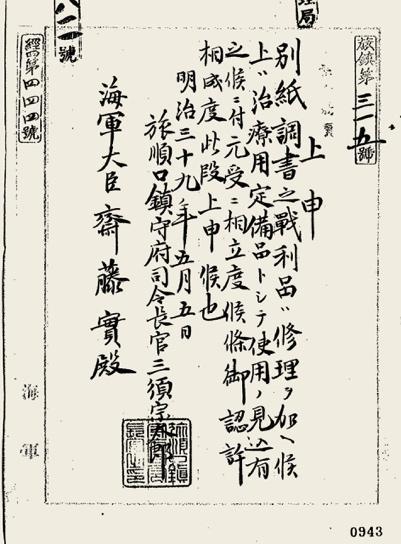 理局
旅鎮第三一五號
上申
別紙調書之戰利品ハ修理ヲ加ヘ候
上ハ治療用定備品トシテ使用ノ見込有
之候ニ付元受ニ相立度候條御認許
相成度此段上申候也
明治三十九年五月五日
旅順口鎮守府司令長官三須宗太郎
海軍大臣齋藤實殿
經第四四四號
海軍
0943